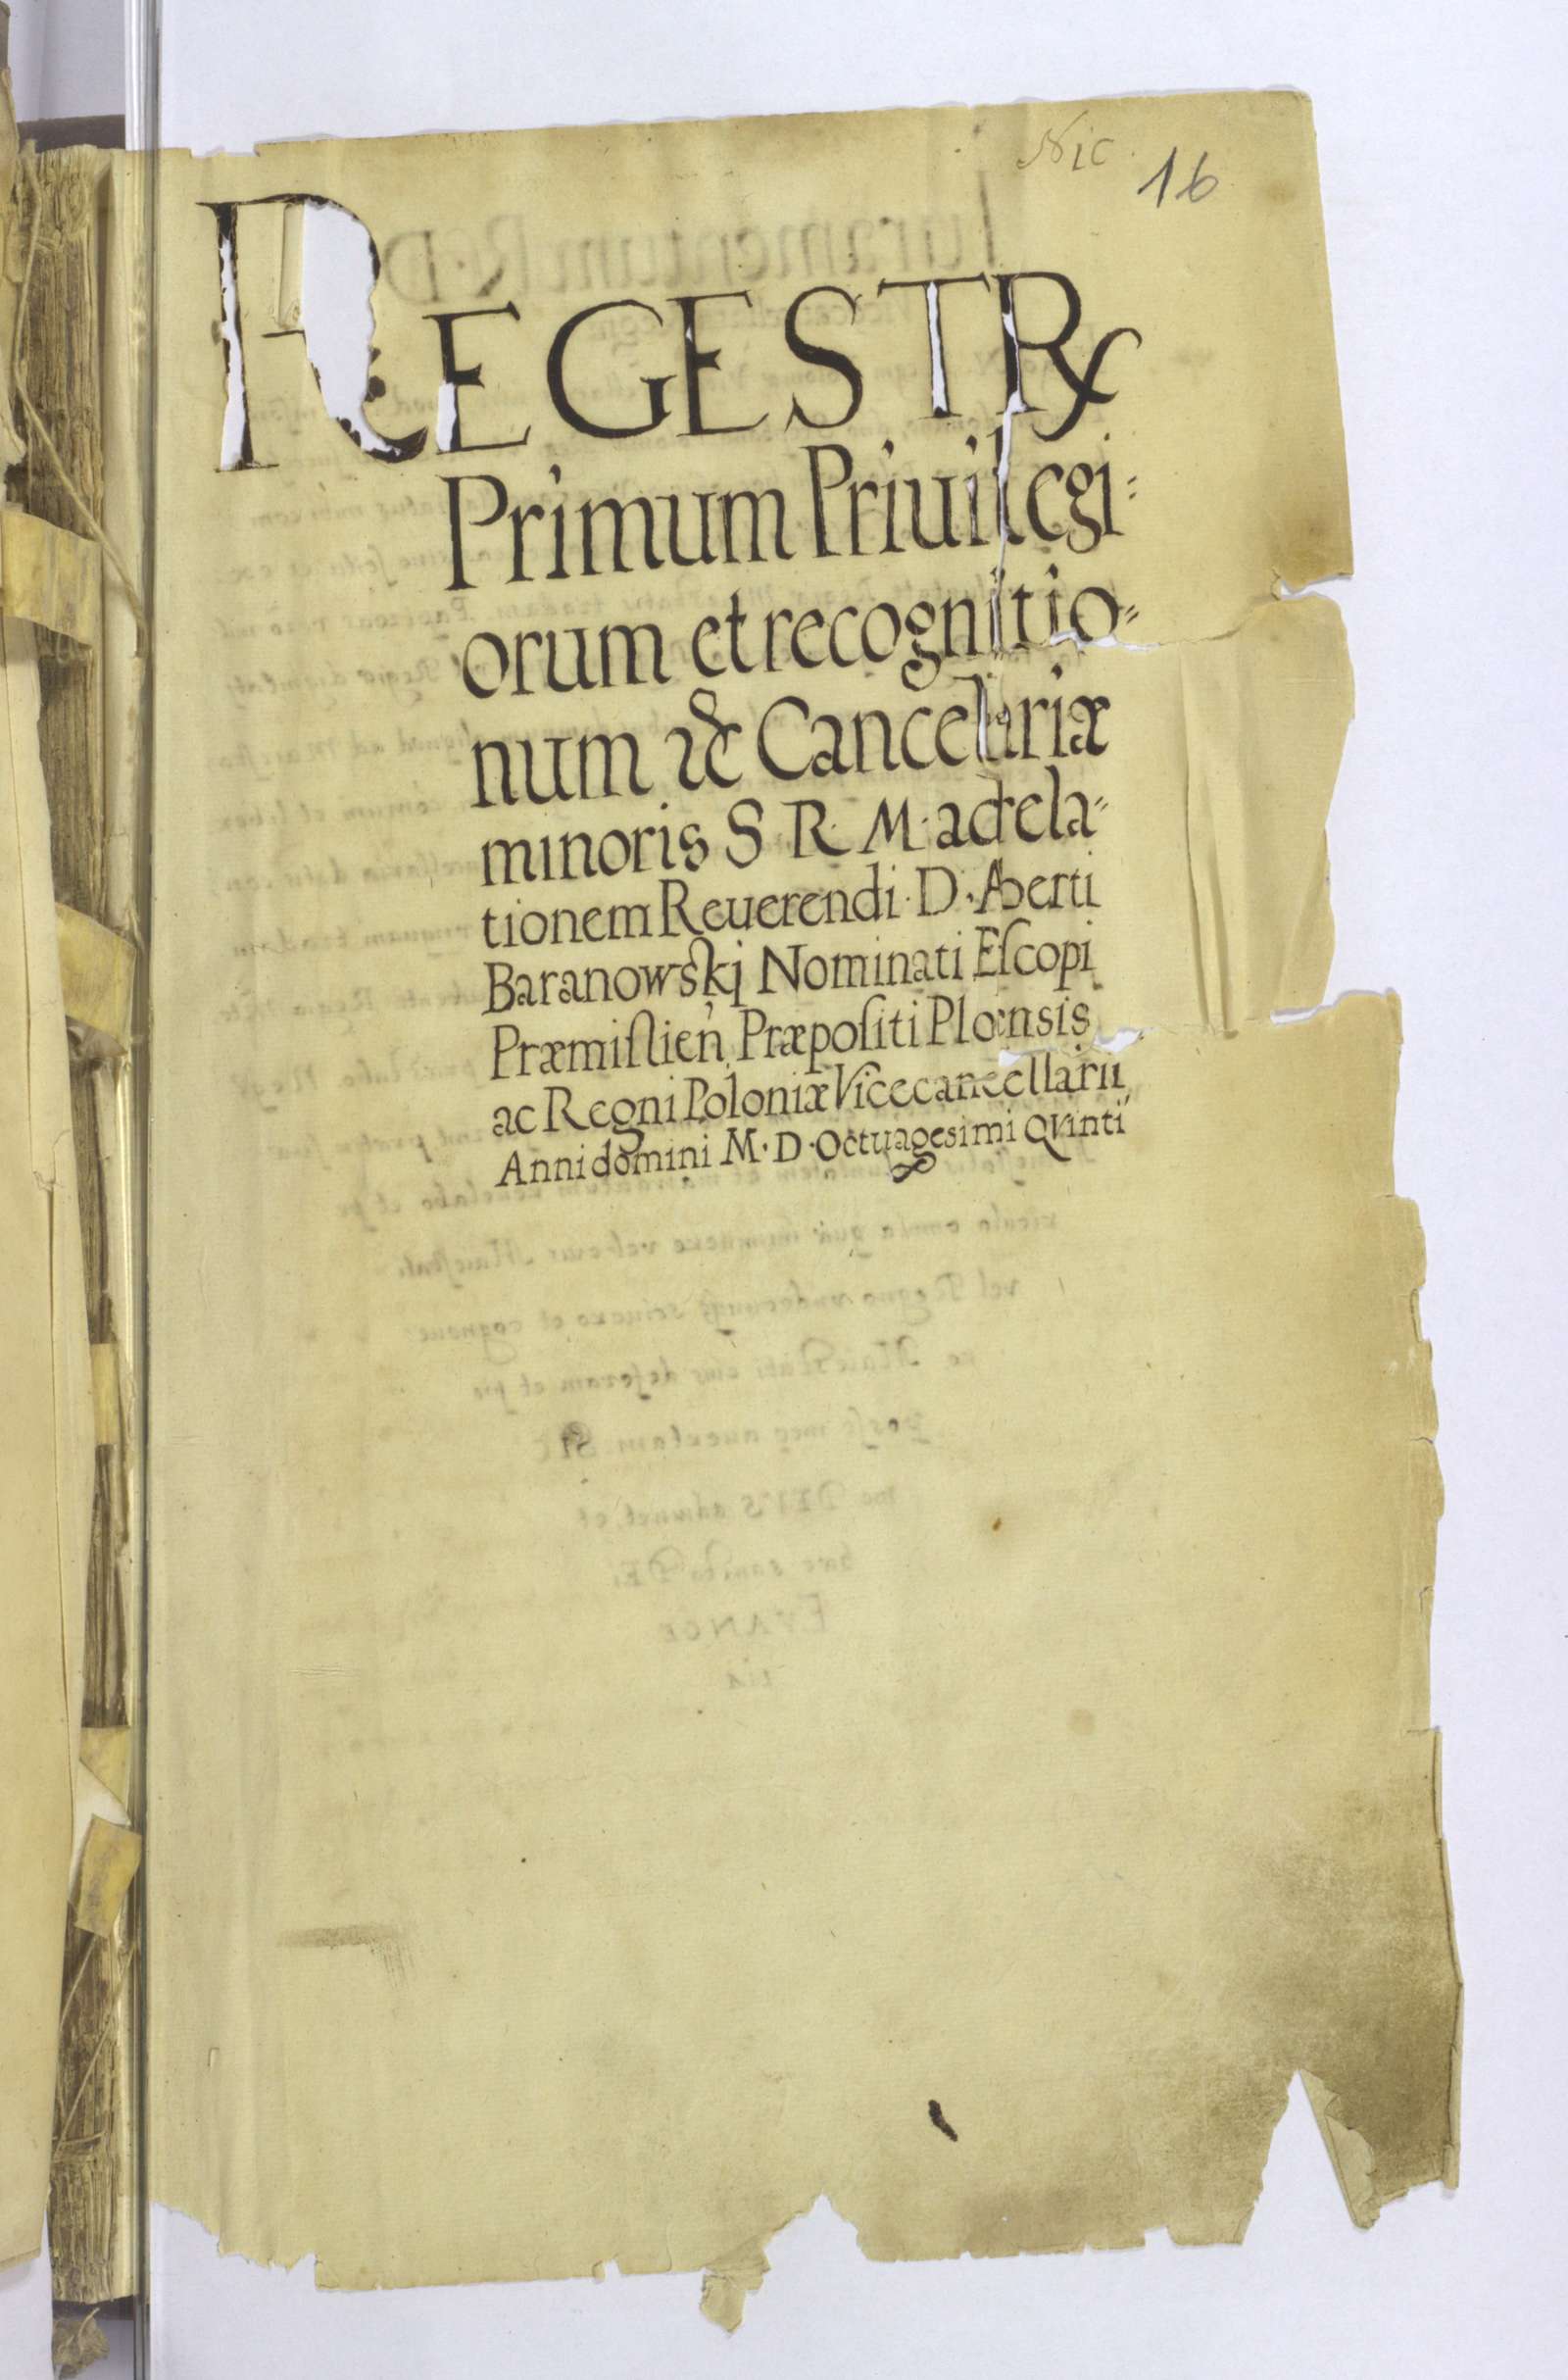 Nic. 16
REGESTR
Primum Priuilegi-
orum et recognitio-
num &c Cancelariæ
minoris S R. M. ad rela-
tionem Reuerendi. D. Alberti
Baranowski Nominati Episcopi
Præmislien Præpositi Plocensis
ac Regni Poloniæ Vicecancellarii
Anni domini M. D. Octuagesimi Qvinti